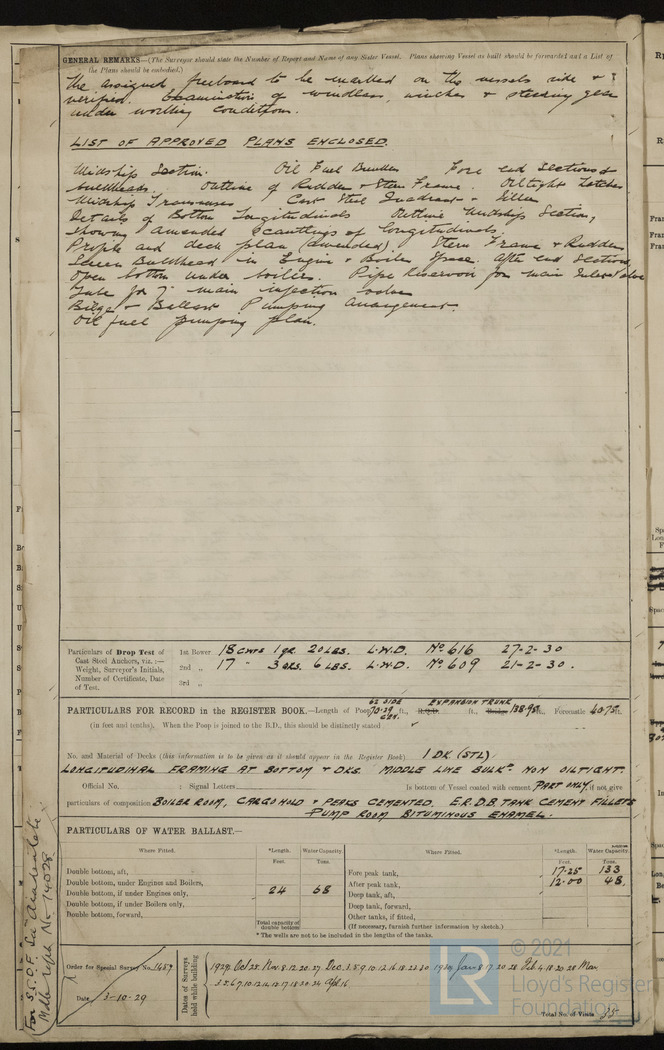 GENERAL REMARKS—(The Surveyor should state the Number of Report and Name of any Sister Vessel. Plans showing Vessel as built should be forwarded and a List of
the Plans should be embodied.)
The assigned freeboard to be marked on the vessels side &
verified. Examination of windlass, winches & steering gear
under working conditions.
LIST OF APPROVED PLANS ENCLOSED.
Midship Section. Oil Fuel Bunkers Fore end Sections &
bulkheads. Outline of Rudder & Stern Frame. Oiltight Hatches
Midship Transverses Cast Steel Quadrant & Tiller
Details of Bottom Longitudinals Outline Midship Section,
showing amended scantlings of longitudinals.
Profile and deck plan (amended). Stern Frame & Rudder
Screen Bulkhead in Engine & Boiler Space. After end Sections
Open bottom under boilers. Pipe Reservoir for main
for 7" main injection
Bilge & Ballast Pumping Arrangement.
Oil fuel pumping plan.
Particulars of Drop Test of
Cast Steel Anchors, viz.:—
Weight, Surveyor's Initials,
Number of Certificate, Date
of Test.
1st Bower 18 CWTS 1 QR 20 LBS. L.W.D. No 616 27-2-30
2nd „ 17 " 3 QRS. 6 LBS. L.W.D. No 609 21-2-30.
3rd „
PARTICULARS FOR RECORD in the REGISTER BOOK.—Length of Poop 70.29 ft., R.Q.D. ft., EXPANSION TRUNK Bridge 138.95 ft., Forecastle 40.75 ft.
(in feet and tenths). When the Poop is joined to the B.D., this should be distinctly stated
No. and Material of Decks (this information is to be given as it should appear in the Register Book) 1 DK (STL)
LONGITUDINAL FRAMING AT BOTTOM & DKS. MIDDLE LINE BULKD NON OILTIGHT.
Official No. ; Signal Letters Is bottom of Vessel coated with cement PART ONLY, if not give
particulars of composition BOILER ROOM, CARGO HOLD & PEAKS CEMENTED. E.R.D.B. TANK CEMENT FILLETS
PUMP ROOM BITUMINOUS ENAMEL.
PARTICULARS OF WATER BALLAST.—
Where Fitted. *Length. Water Capacity. Where Fitted. *Length. Water Capacity.
Feet. Tons. Feet. Tons.
Double bottom, aft,
Double bottom, under Engines and Boilers,
Double bottom, if under Engines only, 24 68
Double bottom, if under Boilers only,
Double bottom, forward,
Total capacity of
double bottom
Fore peak tank, 17.25 133
After peak tank, 12.00 48.
Deep tank, aft,
Deep tank, forward,
Other tanks, if fitted,
(If necessary, furnish further information by sketch.)
* The wells are not to be included in the lengths of the tanks.
Order for Special Survey No. 1459
Date 3-10-29
Dates of Surveys
held while building
1929. Oct 25. Nov 8. 12. 20. 27 Dec. 3. 5. 9. 10. 12. 16. 18. 22. 30 1930 Jan 8. 17. 20. 28 Feb 4. 18. 20. 28 Mar
3. 5. 6. 7. 10. 12. 14. 17. 18. 20. 24 Apl 16
Total No. of Visits 35
© 2021
LR
Lloyd's Register
Foundation